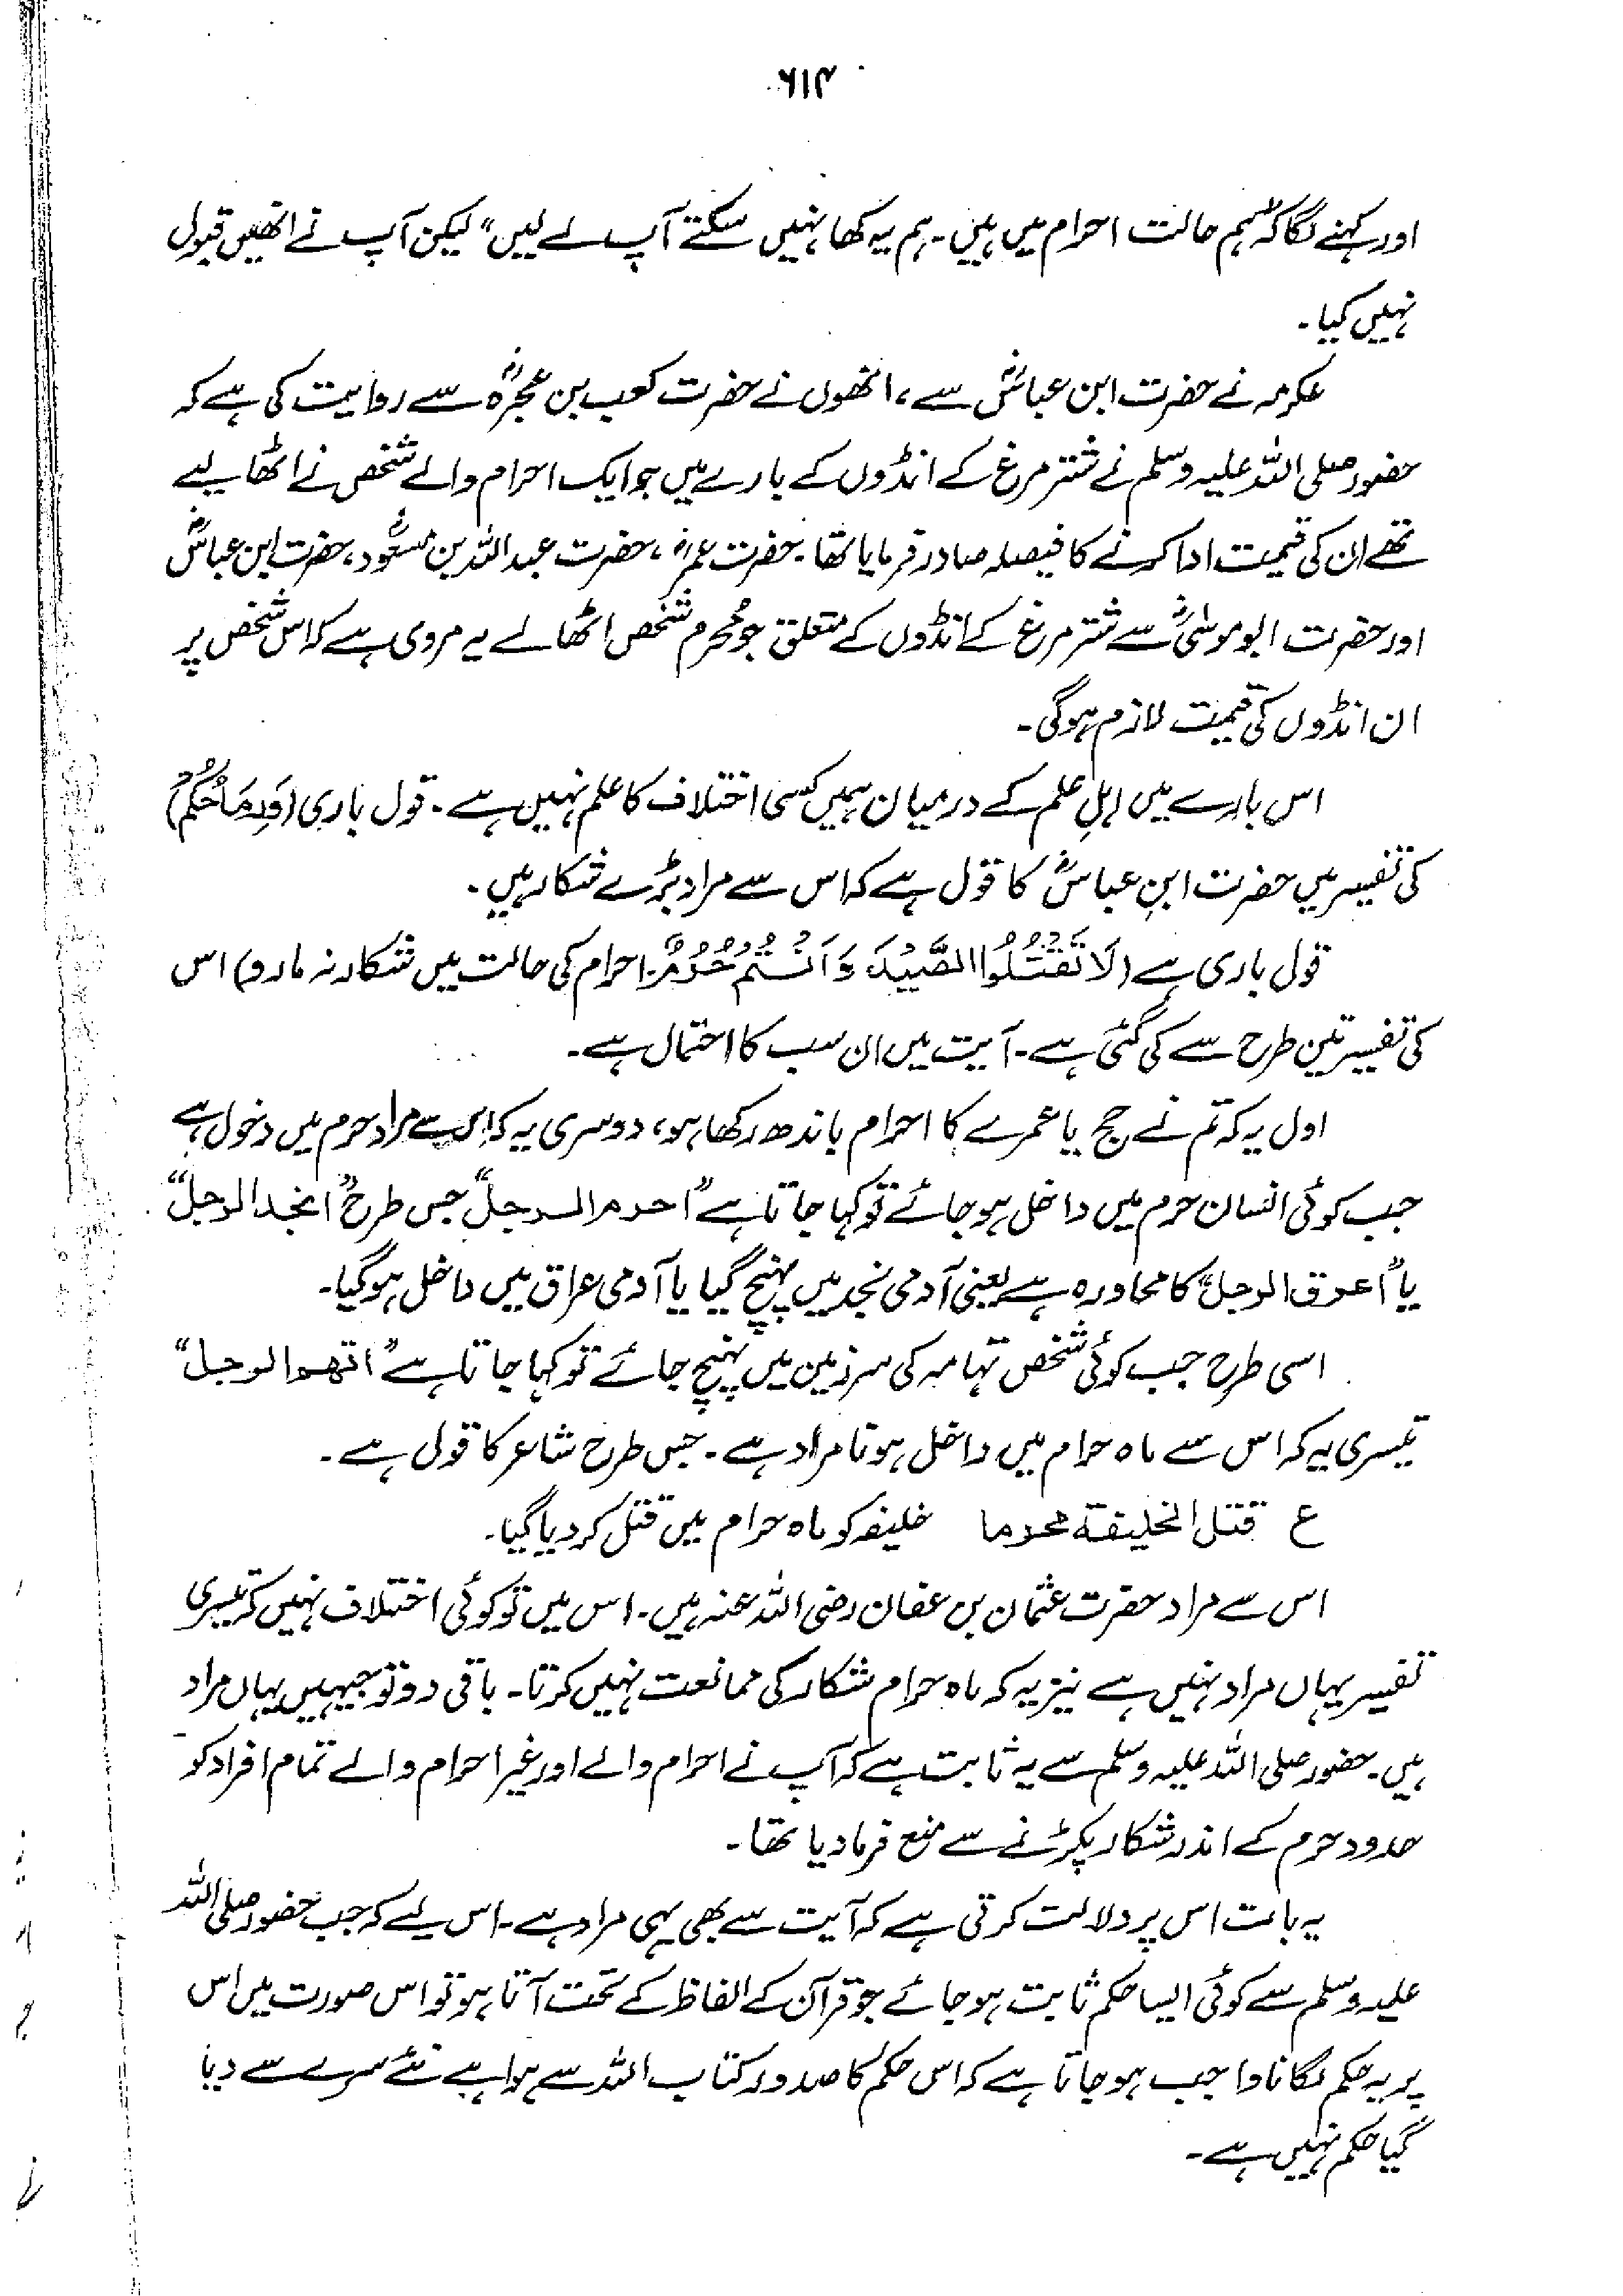 ۶۱۴
اور کہنے لگا کہ "ہم حالت احرام میں ہیں۔ ہم یہ کھا نہیں سکتے آپ لے لیں" لیکن آپ نے انھیں قبول
نہیں کیا۔
عکرمہ نے حضرت ابن عباسؓ سے، انھوں نے حضرت کعب بن عُجرہؓ سے روایت کی ہے کہ
حضور صلی اللہ علیہ وسلم نے شتر مرغ کے انڈوں کے بارے میں جو ایک احرام والے شخص نے اٹھا لیے
تھے ان کی قیمت ادا کرنے کا فیصلہ صادر فرمایا تھا۔ حضرت عمرؓ، حضرت عبداللہ بن مسعودؓ، حضرت ابن عباسؓ
اور حضرت ابو موسٰیؓ سے شتر مرغ کے انڈوں کے متعلق جو مُحرم شخص اٹھا لے یہ مروی ہے کہ اس شخص پر
ان انڈوں کی قیمت لازم ہوگی۔
اس بارے میں اہلِ علم کے درمیان ہمیں کسی اختلاف کا علم نہیں ہے۔ قول باری (وَرِمَاحُكُمْ)
کی تفسیر میں حضرت ابنِ عباسؓ کا قول ہے کہ اس سے مراد بڑے شکار ہیں۔
قول باری ہے (لَا تَقْتُلُوا الصَّيْدَ وَاَنْتُمْ حُرُمٌ۔ احرام کی حالت میں شکار نہ مارو) اس
کی تفسیر تین طرح سے کی گئی ہے۔ آیت میں ان سب کا احتمال ہے۔
اول یہ کہ تم نے حج یا عمرے کا احرام باندھ رکھا ہو، دوسری یہ کہ اس سے مراد حرم میں دخول ہے
جب کوئی انسان حرم میں داخل ہو جائے تو کہا جاتا ہے "احرم الرجل" جس طرح "انجد الرجل"
یا "اعرق الرجل" کا محاورہ ہے یعنی آدمی نجد میں پہنچ گیا یا آدمی عراق میں داخل ہو گیا۔
اسی طرح جب کوئی شخص تہامہ کی سرزمین میں پہنچ جائے تو کہا جاتا ہے "اتهم الرجل"
تیسری یہ کہ اس سے ماہ حرام میں داخل ہونا مراد ہے۔ جس طرح شاعر کا قول ہے۔
ع قتل الخليفة محرما خلیفہ کو ماہ حرام میں قتل کر دیا گیا۔
اس سے مراد حضرت عثمان بن عفان رضی اللہ عنہ ہیں۔ اس میں تو کوئی اختلاف نہیں کہ تیسری
تفسیر یہاں مراد نہیں ہے نیز یہ کہ ماہ حرام شکار کی ممانعت نہیں کرتا۔ باقی دو توجیہیں یہاں مراد
ہیں۔ حضور صلی اللہ علیہ وسلم سے یہ ثابت ہے کہ آپ نے احرام والے اور غیر احرام والے تمام افراد کو
حدود حرم کے اندر شکار پکڑنے سے منع فرما دیا تھا۔
یہ بات اس پر دلالت کرتی ہے کہ آیت سے بھی یہی مراد ہے۔ اس لیے کہ جب حضور صلی اللہ
علیہ وسلم سے کوئی ایسا حکم ثابت ہو جائے جو قرآن کے الفاظ کے تحت آتا ہو تو اس صورت میں اس
پر یہ حکم لگانا واجب ہو جاتا ہے کہ اس حکم کا صدور کتاب اللہ سے ہوا ہے نئے سرے سے دیا
گیا حکم نہیں ہے۔